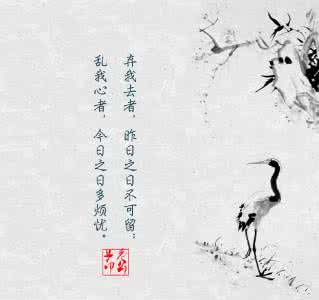 弃我去者，昨日之日不可留；
乱我心者，今日之日多烦忧。